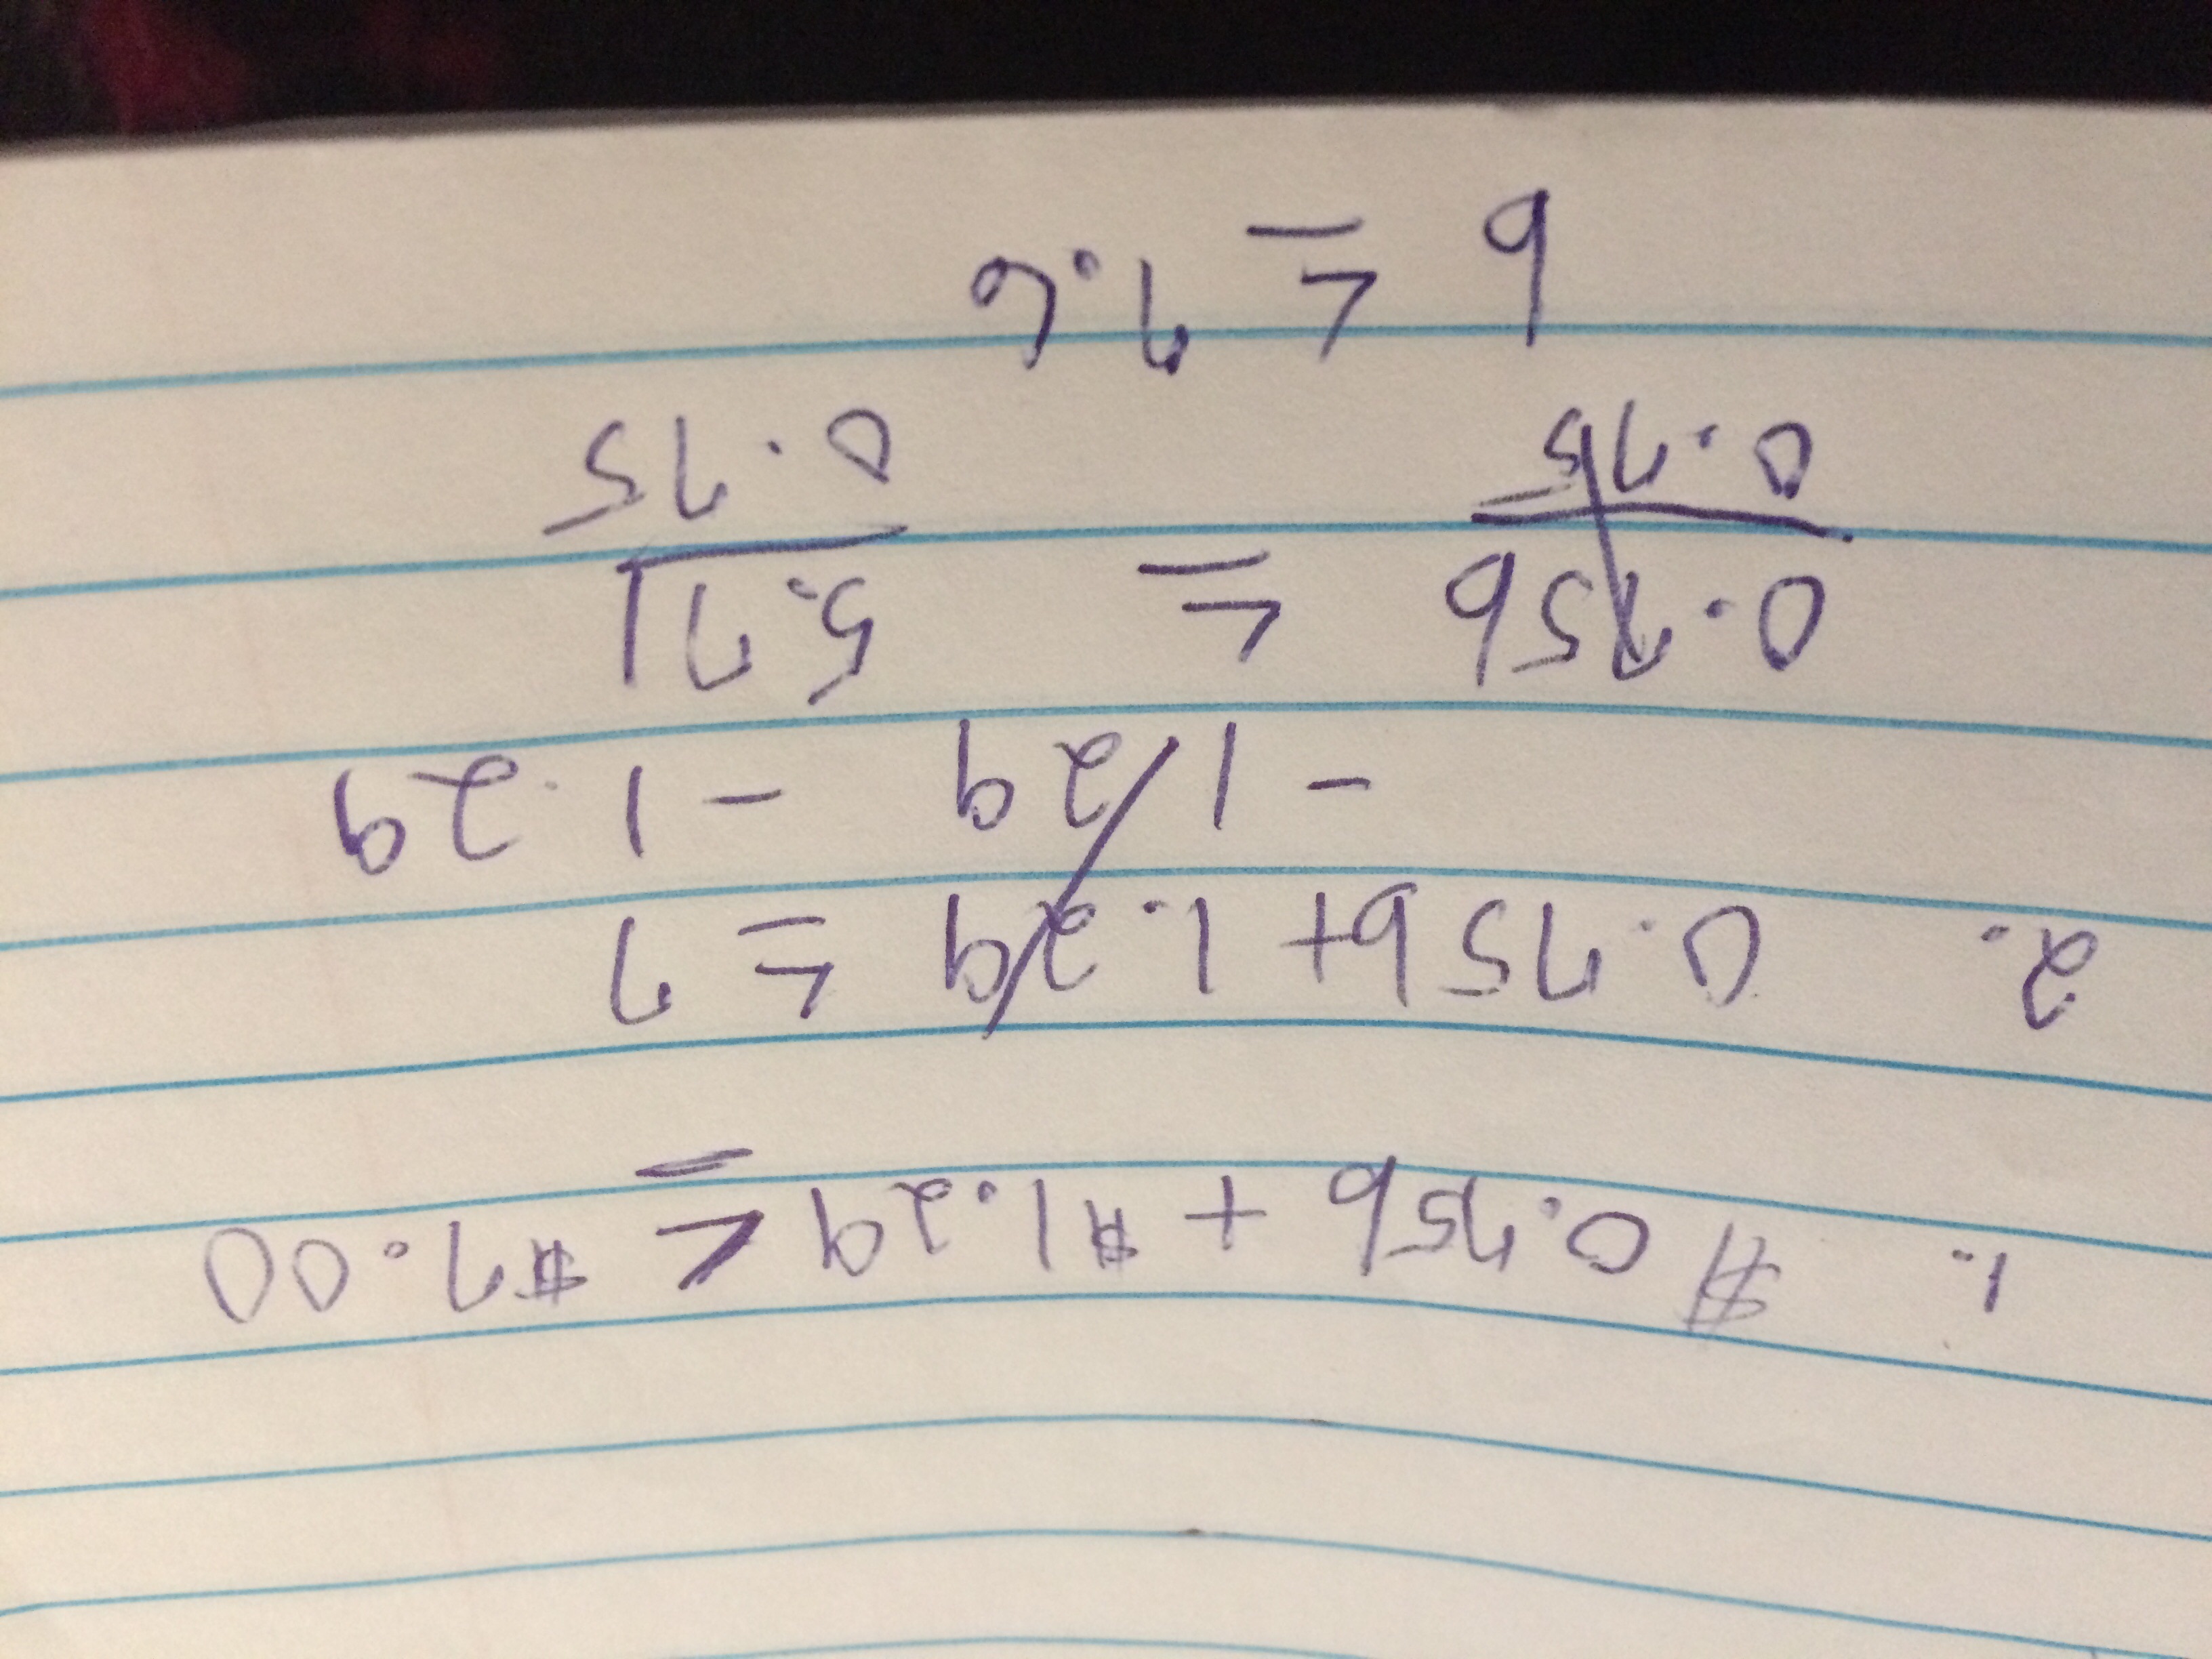 1. $0.75b + $1.29 ≤ $7.00
2. 0.75b + 1.29 ≤ 7
- 1.29 - 1.29
0.75b ≤ 5.71
0.75 0.75
b ≤ 7.6